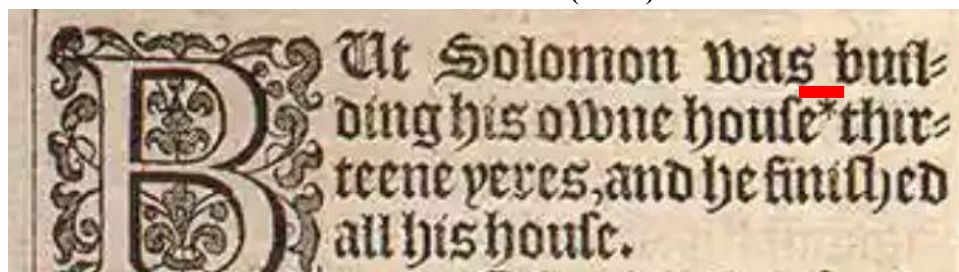 BUt Solomon was buil-
ding his owne houſe*thir-
teene yeres, and he finiſhed
all his houſe.